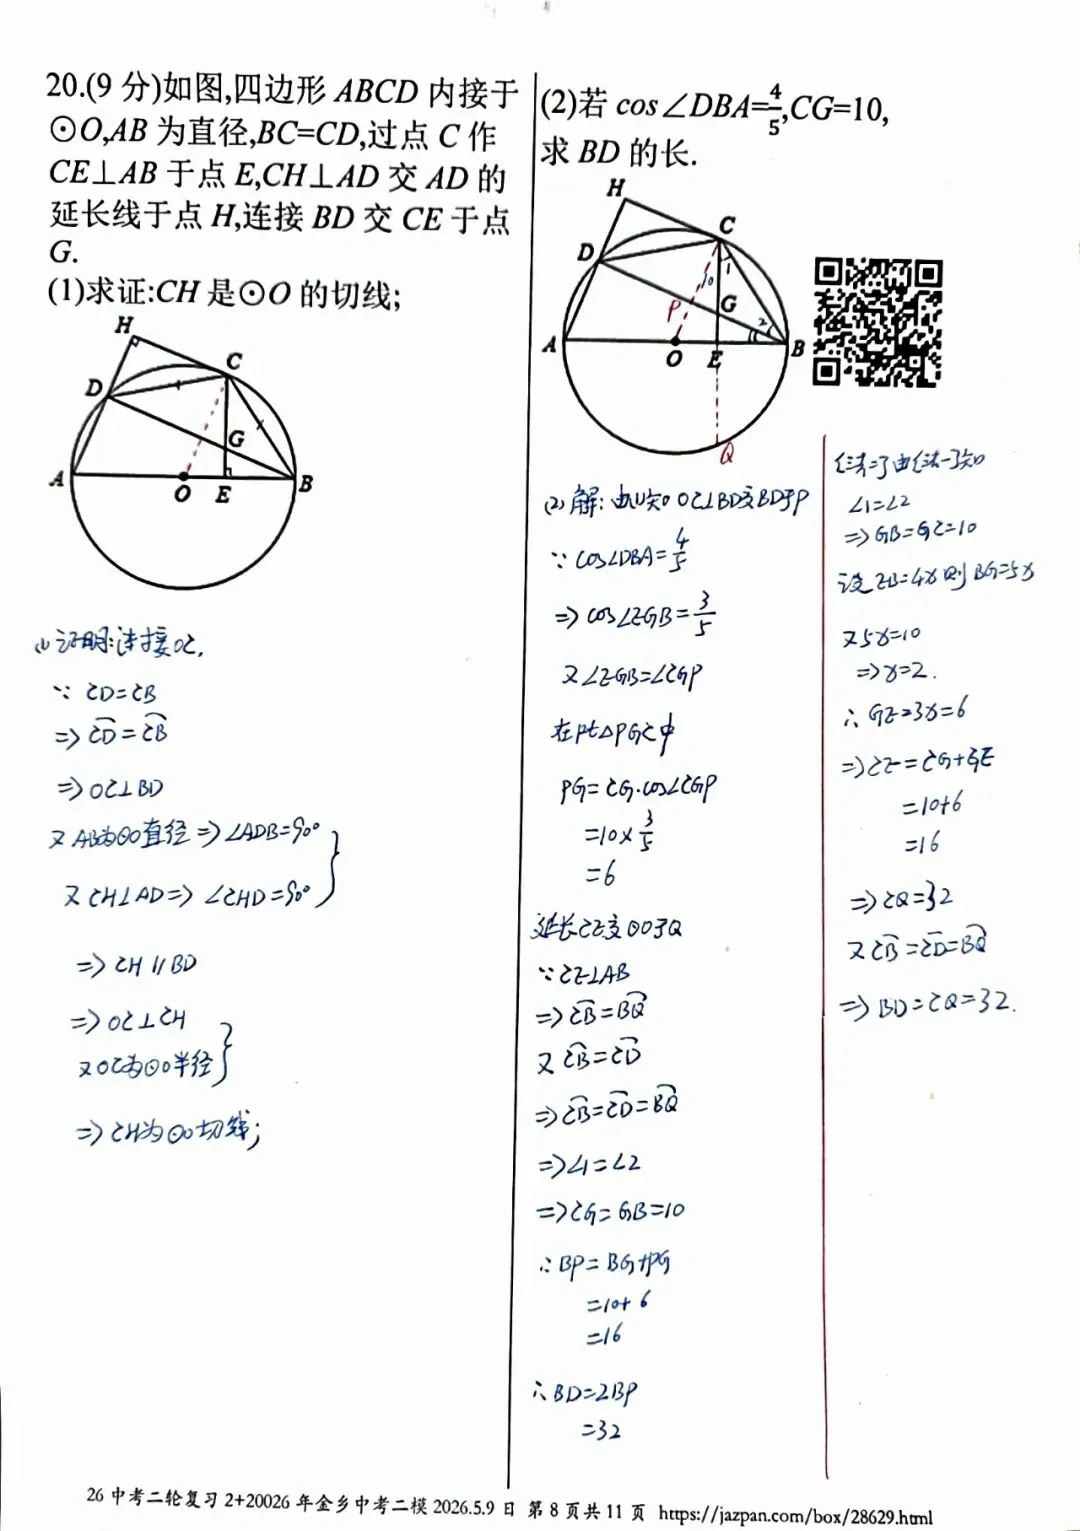 20.(9 分)如图,四边形 ABCD 内接于
⊙O,AB 为直径,BC=CD,过点 C 作
CE⊥AB 于点 E,CH⊥AD 交 AD 的
延长线于点 H,连接 BD 交 CE 于点
G.
(1)求证:CH 是⊙O 的切线;
H
C
D
G
A
O
E
B
(1)证明:连接OC,
∵ CD=CB
⇒ ⌒CD=⌒CB
⇒OC⊥BD
又AB为⊙O直径⇒∠ADB=90°
又CH⊥AD⇒∠CHD=90°
⇒CH∥BD
⇒OC⊥CH
又OC为⊙O半径
⇒CH为⊙O切线;
(2)若 cos∠DBA=4/5,CG=10,
求 BD 的长.
H
C
D
1
10
P
G
2
A
O
E
B
Q
(2)解:由(1)知OC⊥BD交BD于P
∵cos∠DBA=4/5
⇒cos∠EGB=3/5
又∠EGB=∠CGP
在Rt△PGC中
PG=CG·cos∠CGP
=10×3/5
=6
延长CE交⊙O于Q
∵CE⊥AB
⇒⌒CB=⌒BQ
又⌒CB=⌒CD
⇒⌒CB=⌒CD=⌒BQ
⇒∠1=∠2
⇒CG=GB=10
∴BP=BG+PG
=10+6
=16
∴BD=2BP
=32
法二:由法一知
∠1=∠2
⇒GB=GC=10
设EB=4x则BG=5x
又5x=10
⇒x=2.
∴GE=3x=6
⇒CE=CG+GE
=10+6
=16
⇒CQ=32
又⌒CB=⌒CD=⌒BQ
⇒BD=CQ=32.
26 中考二轮复习 2+20026 年金乡中考二模 2026.5.9 日 第 8 页共 11 页 https://jazpan.com/box/28629.html